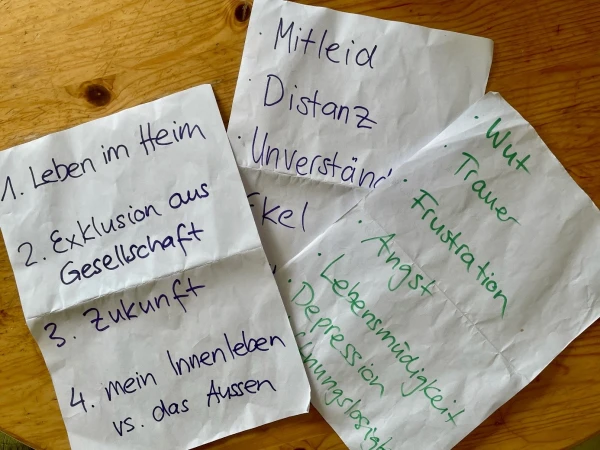 1. Leben im Heim
2. Exklusion aus
Gesellschaft
3. Zukunft
4. mein Innenleben
vs. das Aussen
· Mitleid
· Distanz
· Unverständ
kel
· Wut
· Trauer
· Frustration
· Angst
· Lebensmüdigkeit
· Depression